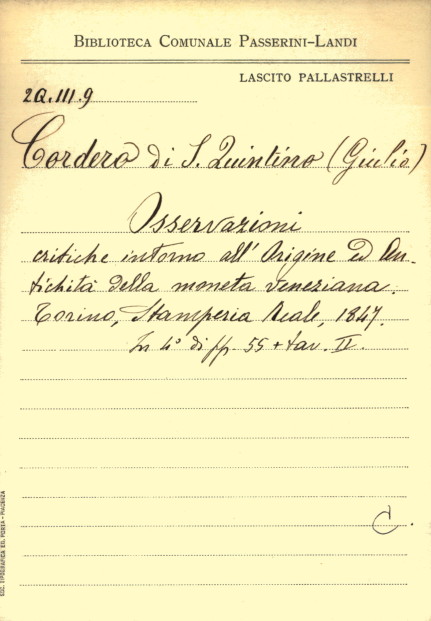 BIBLIOTECA COMUNALE PASSERINI-LANDI
LASCITO PALLASTRELLI
2Q.III.9
Cordero di S. Quintino (Giulio)
Osservazioni
critiche intorno all'Origine ed An-
tichità della moneta veneziana.
Torino, Stamperia Reale, 1847.
In 4° di pp. 55 + tav. II.
C.
SOC. TIPOGRAFICA ED. PORTA - PIACENZA